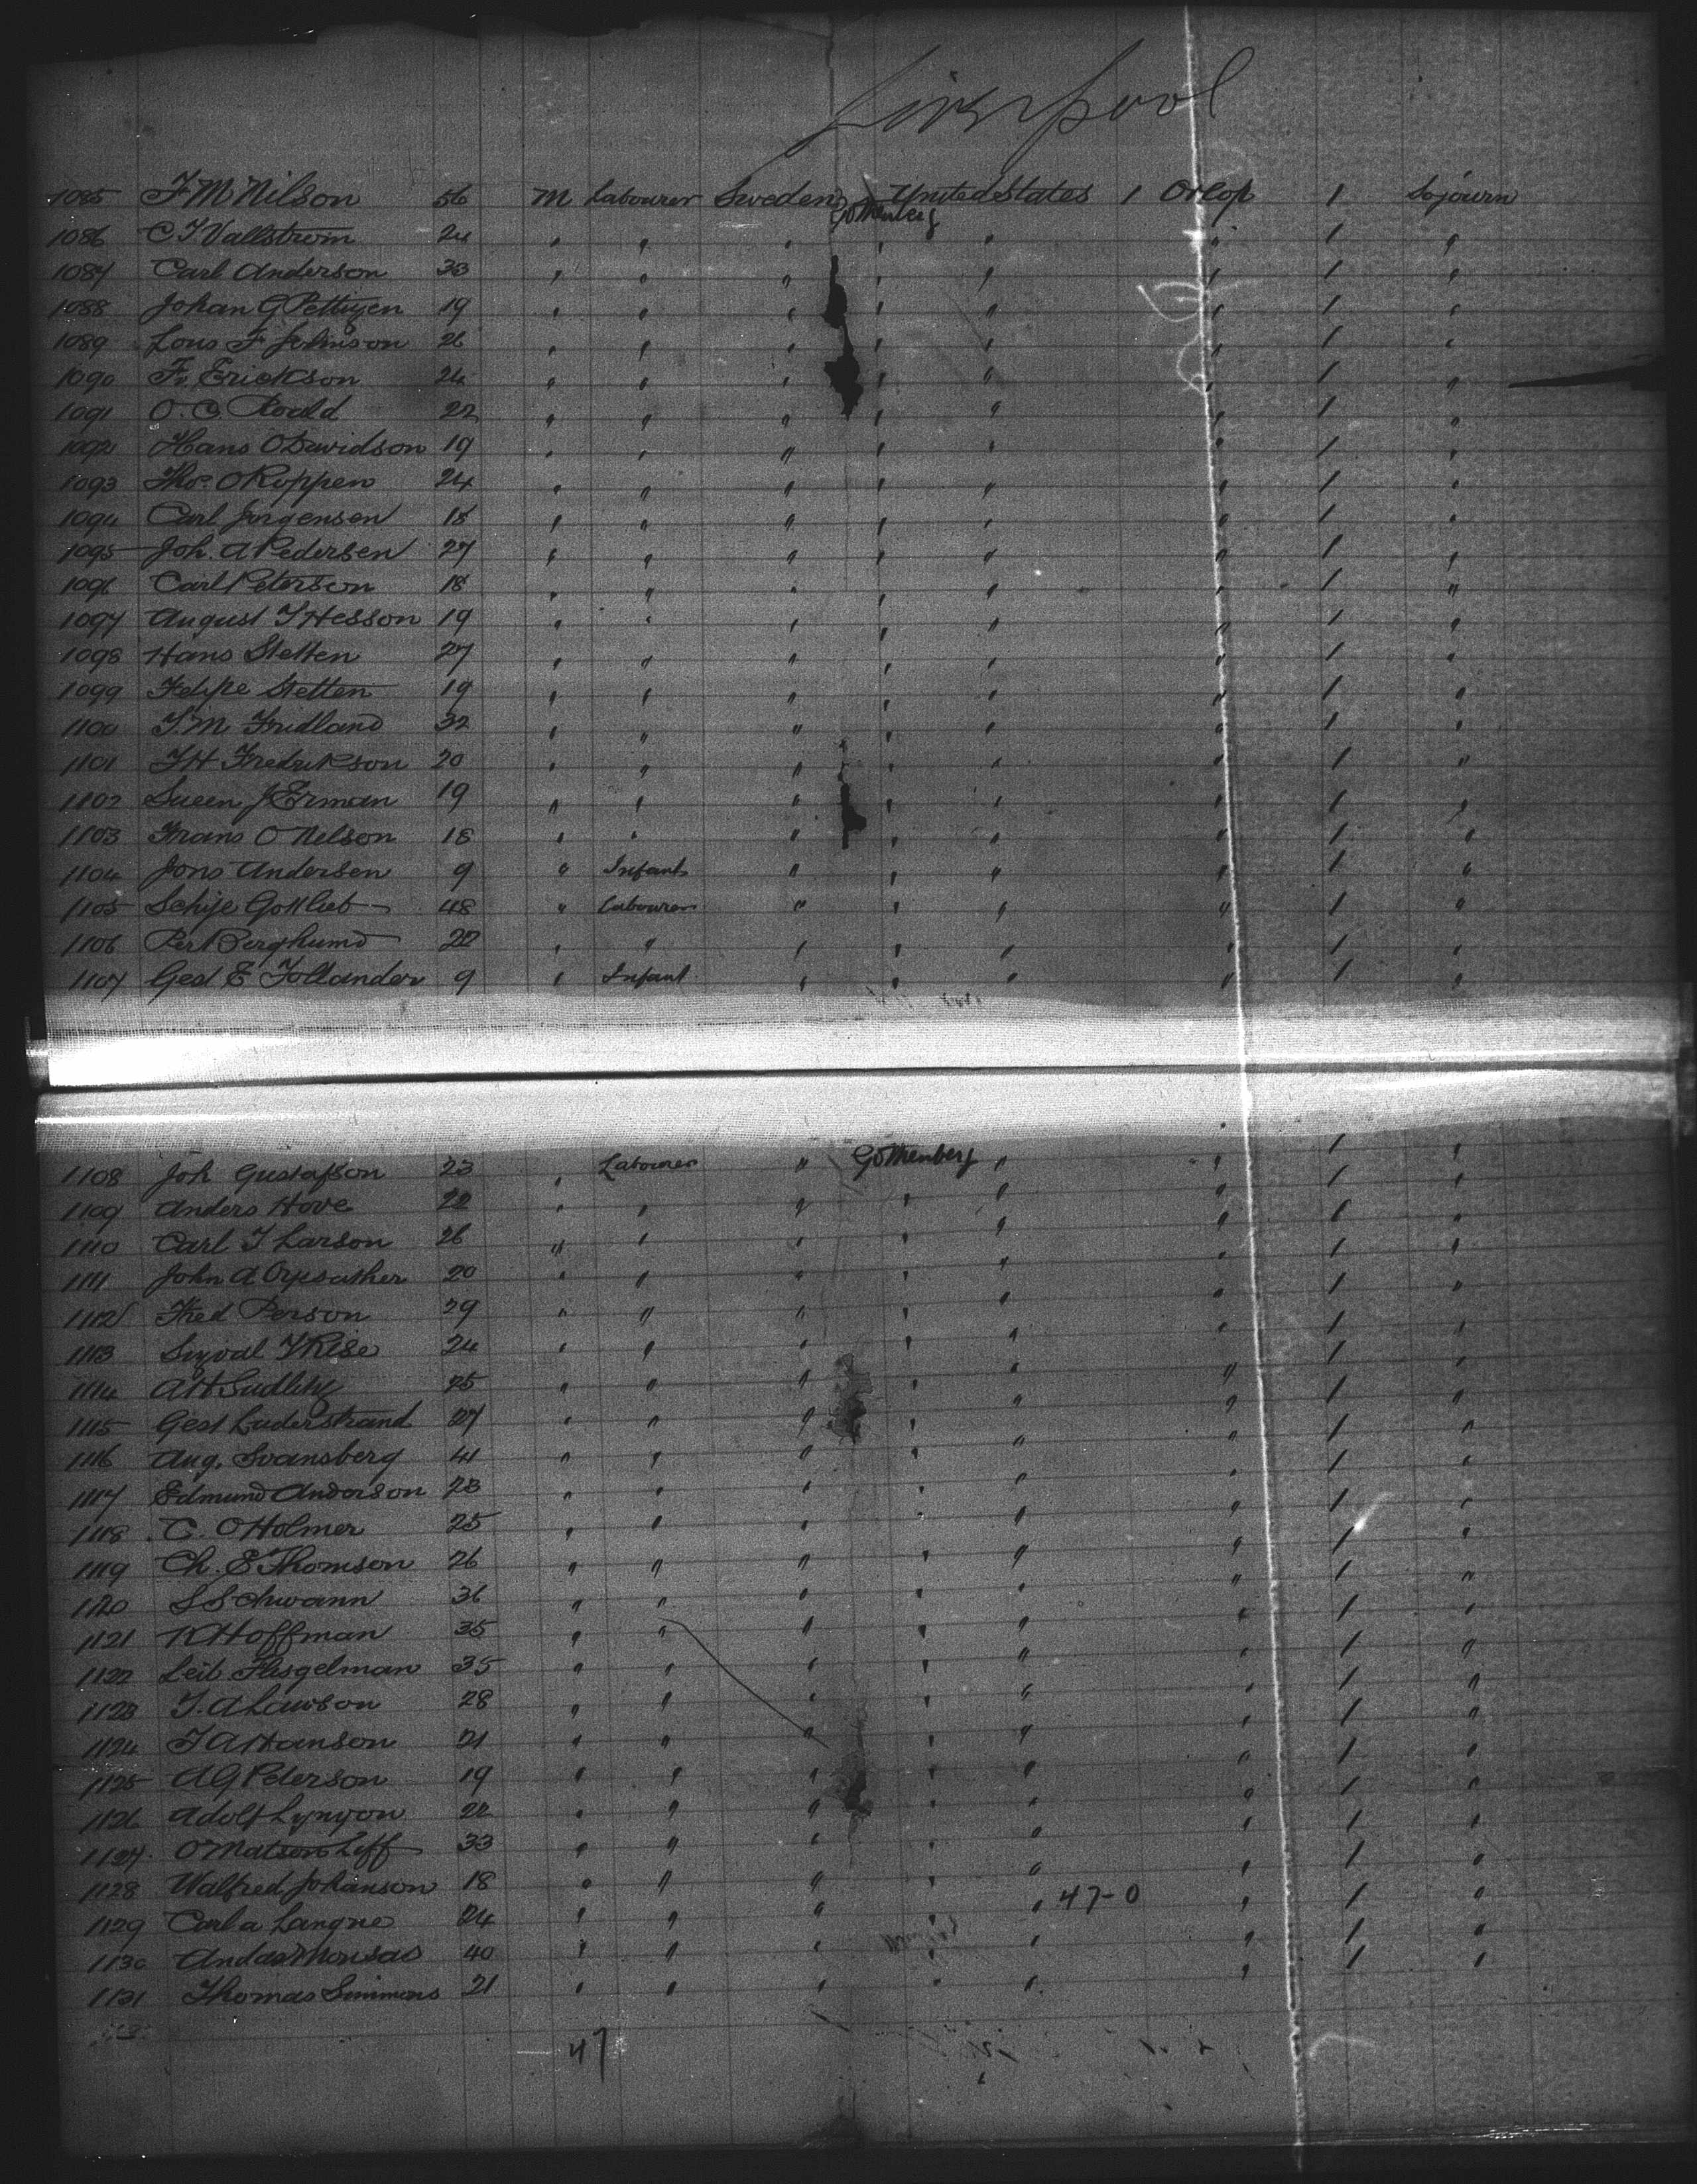 Liverpool
1085 F M Nilson 56 M Labourer Sweden Gothenberg United States 1 Orlop 1 Sojourn
1086 C F Vallstrom 24 " " " " " " 1 "
1087 Carl Anderson 33 " " " " " " 1 "
1088 Johan G 19 " " " " " " 1 "
1089 Lous F Johnson 26 " " " " " " 1 "
1090 Fr. Erickson 24 " " " " " " 1 "
1091 O. C. Roald 22 " " " " " " 1 "
1092 Hans O Davidson 19 " " " " " " 1 "
1093 Tho. O Koppen 24 " " " " " " 1 "
1094 Carl Jorgensen 18 " " " " " " 1 "
1095 Joh. A Pedersen 27 " " " " " " 1 "
1096 Carl Peterson 18 " " " " " " 1 "
1097 August T Hesson 19 " " " " " " 1 "
1098 Hans Stetten 27 " " " " " " 1 "
1099 Felipe Stetten 19 " " " " " " 1 "
1100 F. M Fridland 32 " " " " " " 1 "
1101 F H Fredrikson 20 " " " " " " 1 "
1102 Sueen J Erman 19 " " " " " " 1 "
1103 Frans O Nelson 18 " " " " " " 1 "
1104 Jons Andersen 9 " Infant " " " " 1 "
1105 Schije Gottlieb 48 " Labourer " " " " 1 "
1106 Per Berghund 22 " " " " " " 1 "
1107 Gest E Tollander 9 " Infant " " " " 1 "
1108 Joh Gustafson 23 " Labourer " Gothenberg " " 1 "
1109 Anders Hove 22 " " " " " " 1 "
1110 Carl J Larson 26 " " " " " " 1 "
1111 John A 20 " " " " " " 1 "
1112 Fred Person 29 " " " " " " 1 "
1113 Sigval 24 " " " " " " 1 "
1114 A H 25 " " " " " " 1 "
1115 Gest Luderstrand 27 " " " " " " 1 "
1116 Aug. Svansberg 41 " " " " " " 1 "
1117 Edmund Anderson 23 " " " " " " 1 "
1118 C. O Holmer 25 " " " " " " 1 "
1119 Ch. E Thomson 26 " " " " " " 1 "
1120 S Schwann 36 " " " " " " 1 "
1121 K Hoffman 35 " " " " " " 1 "
1122 Leib Fliegelman 35 " " " " " " 1 "
1123 F. A Lawson 28 " " " " " " 1 "
1124 F A Hanson 21 " " " " " " 1 "
1125 A G Peterson 19 " " " " " " 1 "
1126 Adolf 22 " " " " " " 1 "
1127 O Matson Leff 33 " " " " " " 1 "
1128 Walfred Johanson 18 " " " " " " 1 "
1129 Carl A Langne 24 " " " " " 47-0 " 1 "
1130 Andas Monsas 40 " " " " " " 1 "
1131 Thomas Simmons 21 " " " " " " 1 "
47